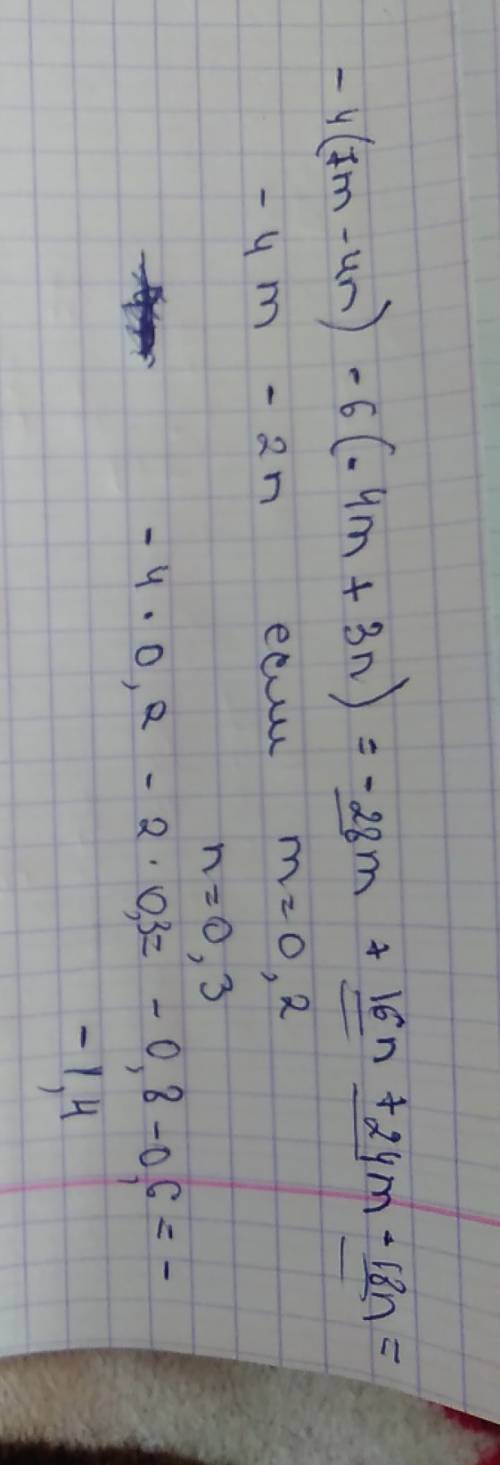 - 4(7m - 4n) - 6(- 4m + 3n) = - 28m + 16n + 24m - 18n =
- 4m - 2n если m = 0,2
n = 0,3
- 4 · 0,2 - 2 · 0,3 = - 0,8 - 0,6 = -
- 1,4